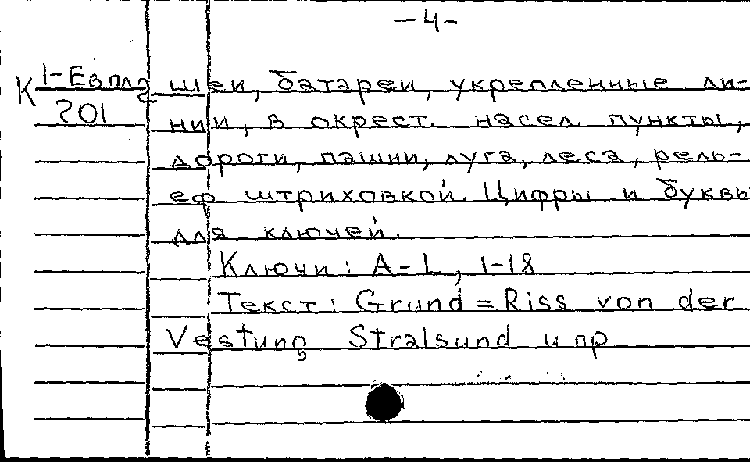 -4-
К 1-Евпл2
201
шеи, батареи, укрепленные ли-
нии, в окрест. насел пункты,
дороги, пашни, луга, леса, рель-
еф штриховкой. Цифры и буквы
для ключей.
Ключи: A-L, 1-18
Текст: Grund=Riss von der
Vestung Stralsund и пр